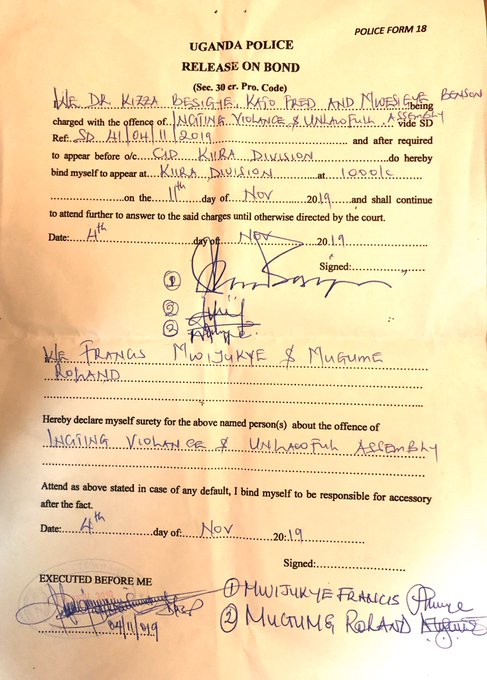 POLICE FORM 18
UGANDA POLICE
RELEASE ON BOND
(Sec. 30 cr. Pro. Code)
I WE DR KIZZA BESIGYE, KATO FRED AND MWESIGYE BENSON being
charged with the offence of INCITING VIOLANCE & UNLAWFULL ASSEMBLY vide SD
Ref: SD 41/04/11/2019 and after required
to appear before o/c CID KIIRA DIVISION do hereby
bind myself to appear at KIIRA DIVISION at 1000/c
on the 11th day of NOV 2019 and shall continue
to attend further to answer to the said charges until otherwise directed by the court.
Date: 4th day of NOV 2019
Signed:
①
②
③
WE FRANCIS MWIJUKYE & MUGUME
ROLAND
Hereby declare myself surety for the above named person(s) about the offence of
INCITING VIOLANCE & UNLAWFUL ASSEMBLY
Attend as above stated in case of any default, I bind myself to be responsible for accessory
after the fact.
Date: 4th day of: NOV 20:19
Signed:
EXECUTED BEFORE ME
04/11/2019
① MWIJUKYE FRANCIS
② MUGUME ROLAND